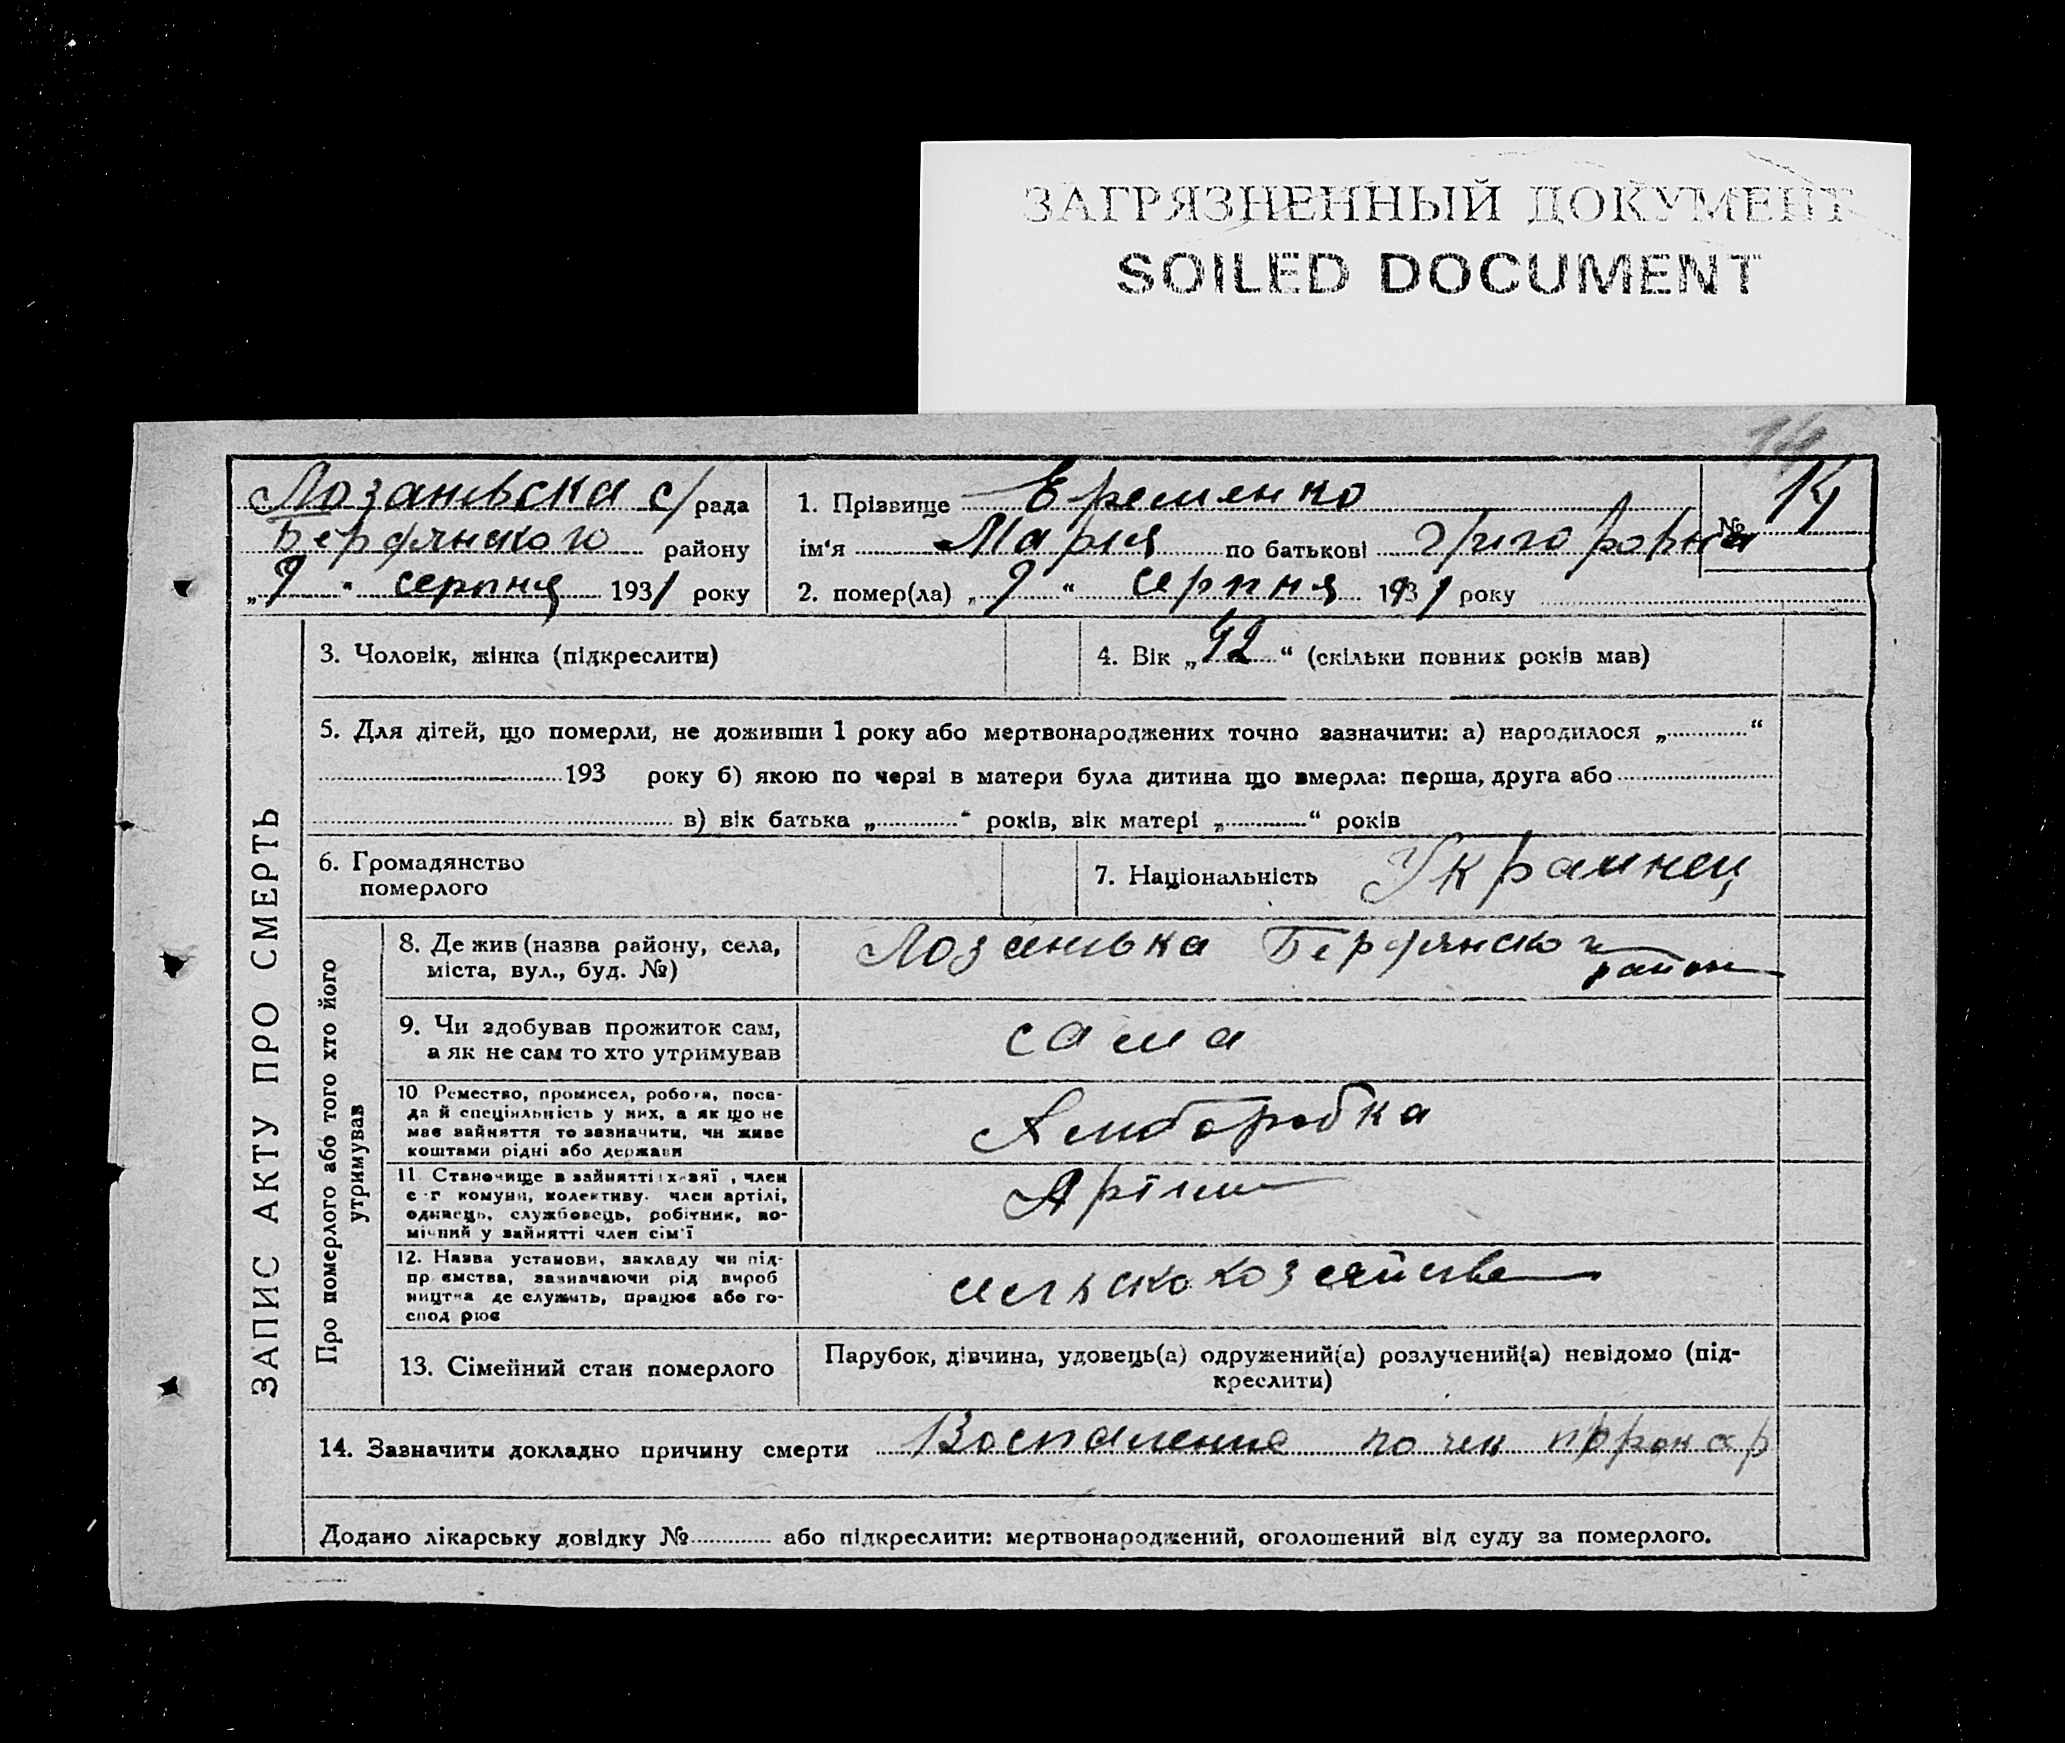 ЗАГРЯЗНЕННЫЙ ДОКУМЕНТ
SOILED DOCUMENT
14
Лозанівська с/рада
Бердянского району
„9“ серпня 1931 року
1. Прізвище Еременко
ім‘я Марія по батькові Григоровна
№ 14
2. помер(ла) „9“ серпня 1931 року
ЗАПИС АКТУ ПРО СМЕРТЬ
3. Чоловік, жінка (підкреслити)
4. Вік „42“ (скільки повних років мав)
5. Для дітей, що померли, не доживши 1 року або мертвонароджених точно зазначити: а) народилося „ “
193 року б) якою по черзі в матери була дитина що вмерла: перша, друга або
в) вік батька „ “ років, вік матері „ “ років
6. Громадянство
померлого
7. Національність Украинец
Про померлого або того хто його
утримував
8. Де жив (назва району, села,
міста, вул., буд. №)
Бердянског
район
9. Чи здобував прожиток сам,
а як не сам то хто утримував
сама
10. Ремество, промисел, робота, поса-
да й спеціяльність у них, а як що не
має зайняття то зазначити, чи живе
коштами рідні або держави
11. Становище в зайнятті: х-зяї , член
с-г комуни, колективу. член артілі,
одинець, службовець, робітник, по-
мічний у зайнятті член сім‘ї
12. Назва установи, закладу чи під-
пр ємства, зазначаючи рід вироб
ництва де служить, працює або го-
спод рює
13. Сімейний стан померлого
Парубок, дівчина, удовець(а) одружений(а) розлучений(а) невідомо (під-
креслити)
14. Зазначити докладно причину смерти Воспаление почек
Додано лікарську довідку № або підкреслити: мертвонароджений, оголошений від суду за померлого.